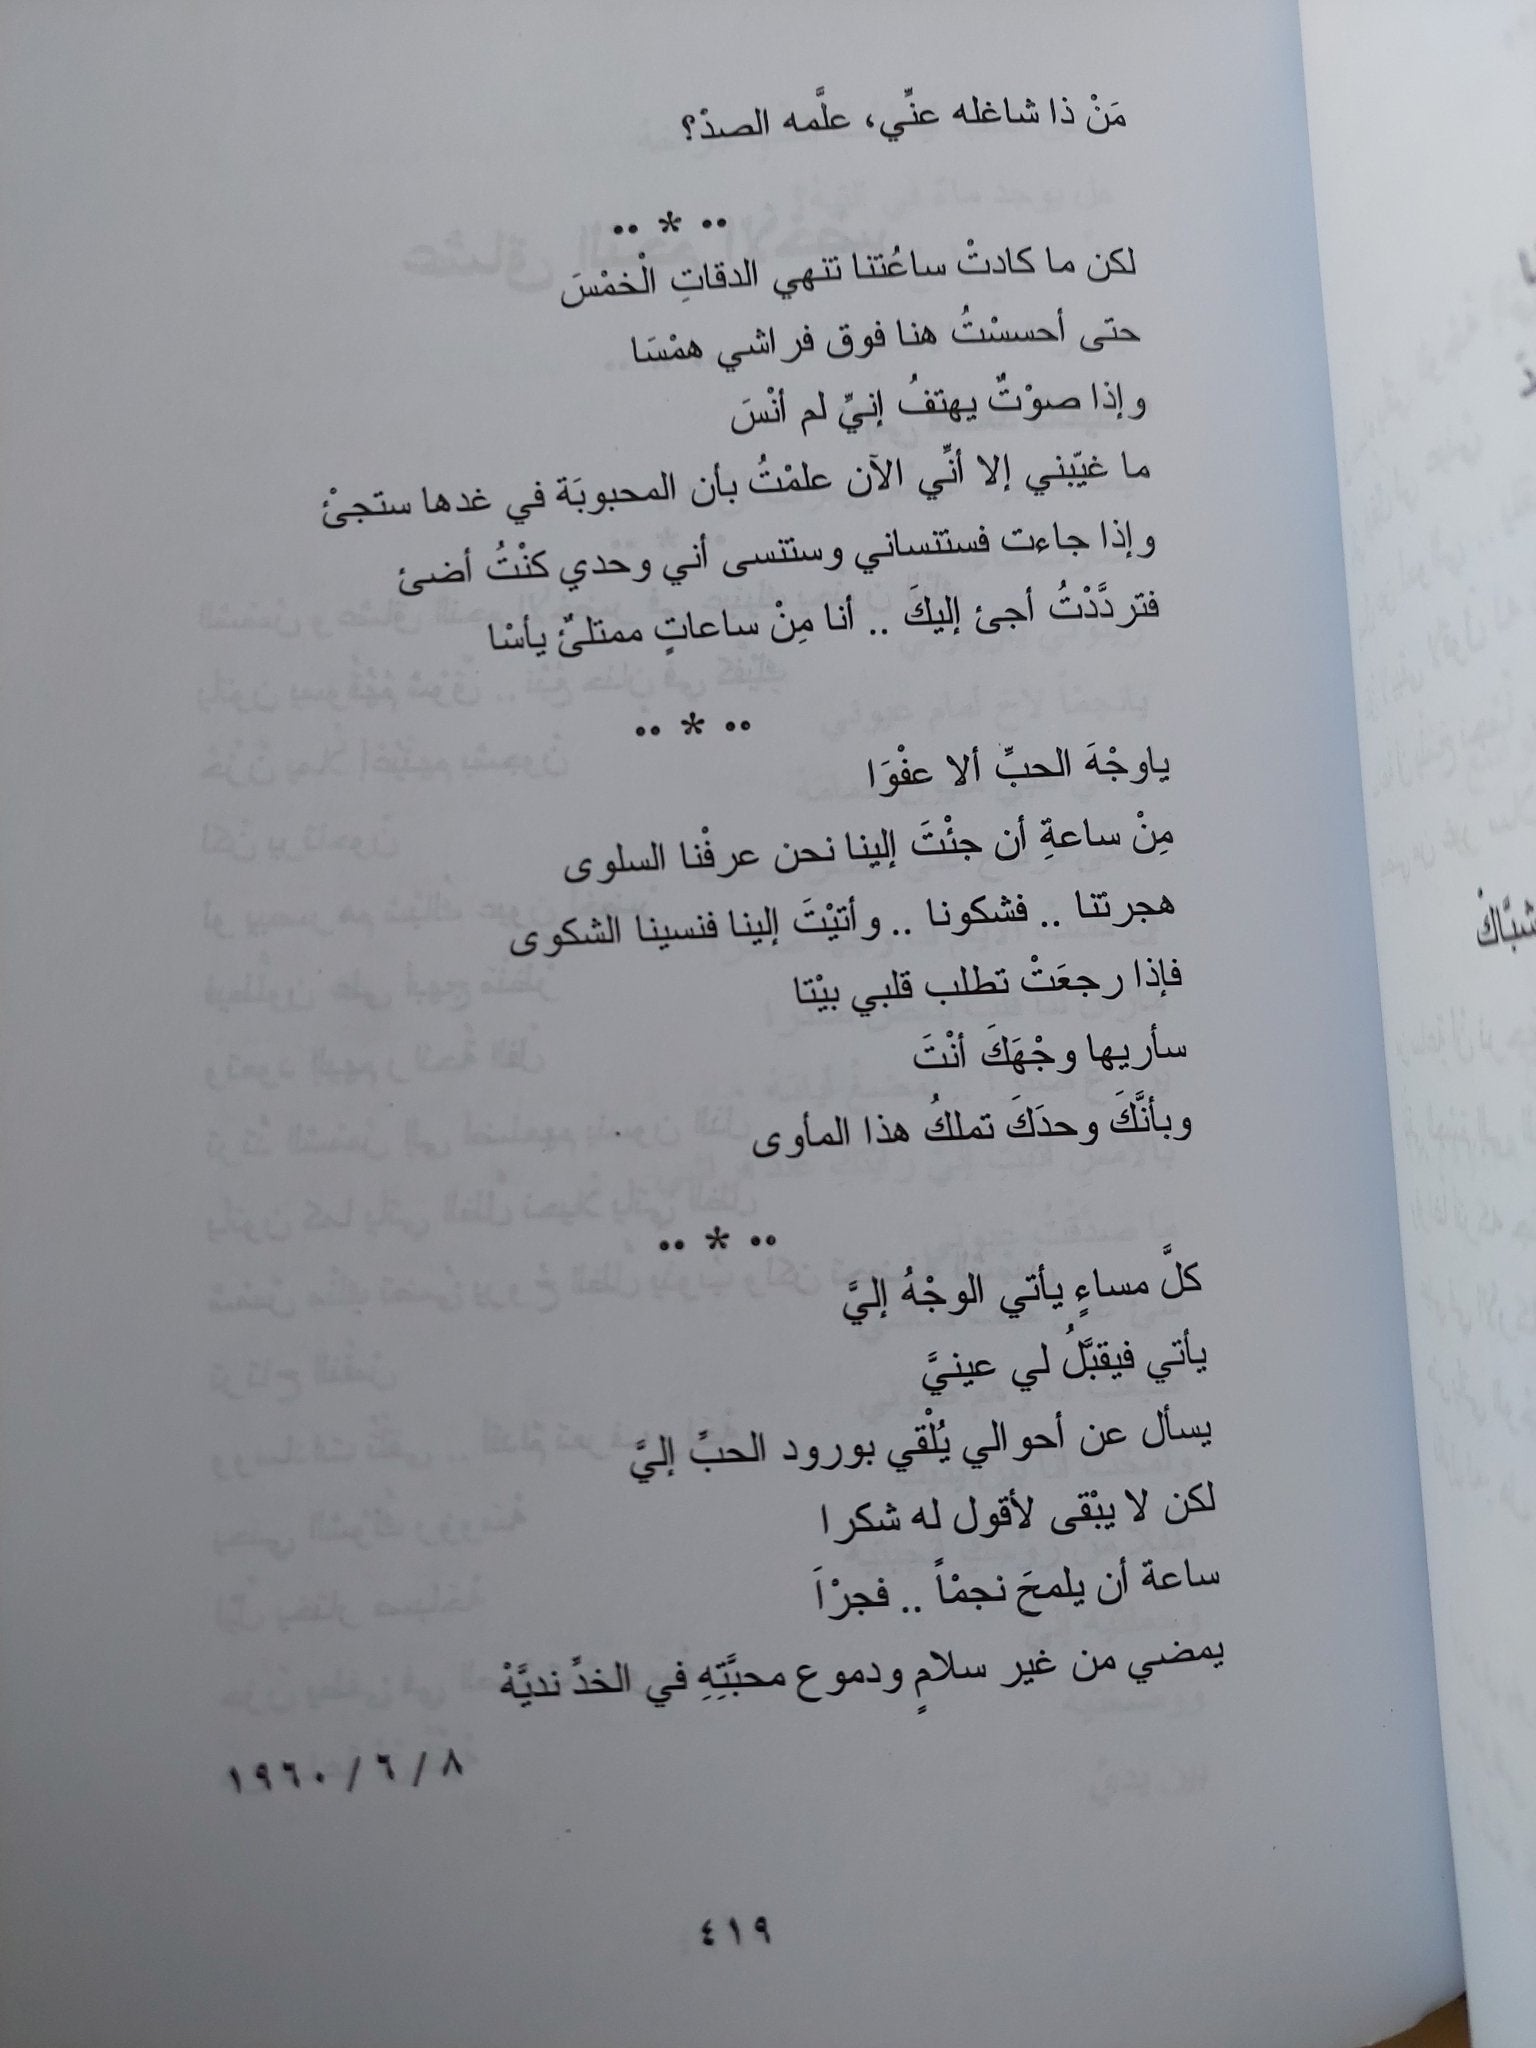 مَنْ ذا شاغله عنِّي، علَّمه الصدْ؟
.. * ..
لكن ما كادتْ ساعُتنا تنهي الدقاتِ الْخمْسَ
حتى أحسسْتُ هنا فوق فراشي همْسَا
وإذا صوْتٌ يهتفُ إنيِّ لم أنْسَ
ما غيّبني إلا أنِّي الآن علمْتُ بأن المحبوبَة في غدها ستجئْ
وإذا جاءت فستنساني وستنسى أني وحدي كنْتُ أضئ
فتردَّدْتُ أجئ إليكَ .. أنا مِنْ ساعاتٍ ممتلئٌ يأسْا
.. * ..
ياوجْهَ الحبِّ ألا عفْوَا
مِنْ ساعةِ أن جئْتَ إلينا نحن عرفْنا السلوى
هجرتْنا .. فشكونا .. وأتيْتَ إلينا فنسينا الشكوى
فإذا رجعَتْ تطلب قلبي بيْتا
سأريها وجْهَكَ أنْتَ
وبأنَّكَ وحدَكَ تملكُ هذا المأوى
.. * ..
كلَّ مساءٍ يأتي الوجْهُ إليَّ
يأتي فيقبَّلُ لي عينيَّ
يسأل عن أحوالي يُلْقي بورود الحبً إليَّ
لكن لا يبْقى لأقول له شكرا
ساعة أن يلمحَ نجمْاً .. فجرْاَ
يمضي من غير سلامٍ ودموع محبَّتِهِ في الخدِّ نديَّهْ
٨ / ٦ / ١٩٦٠
٤١٩
شبَّاكْ